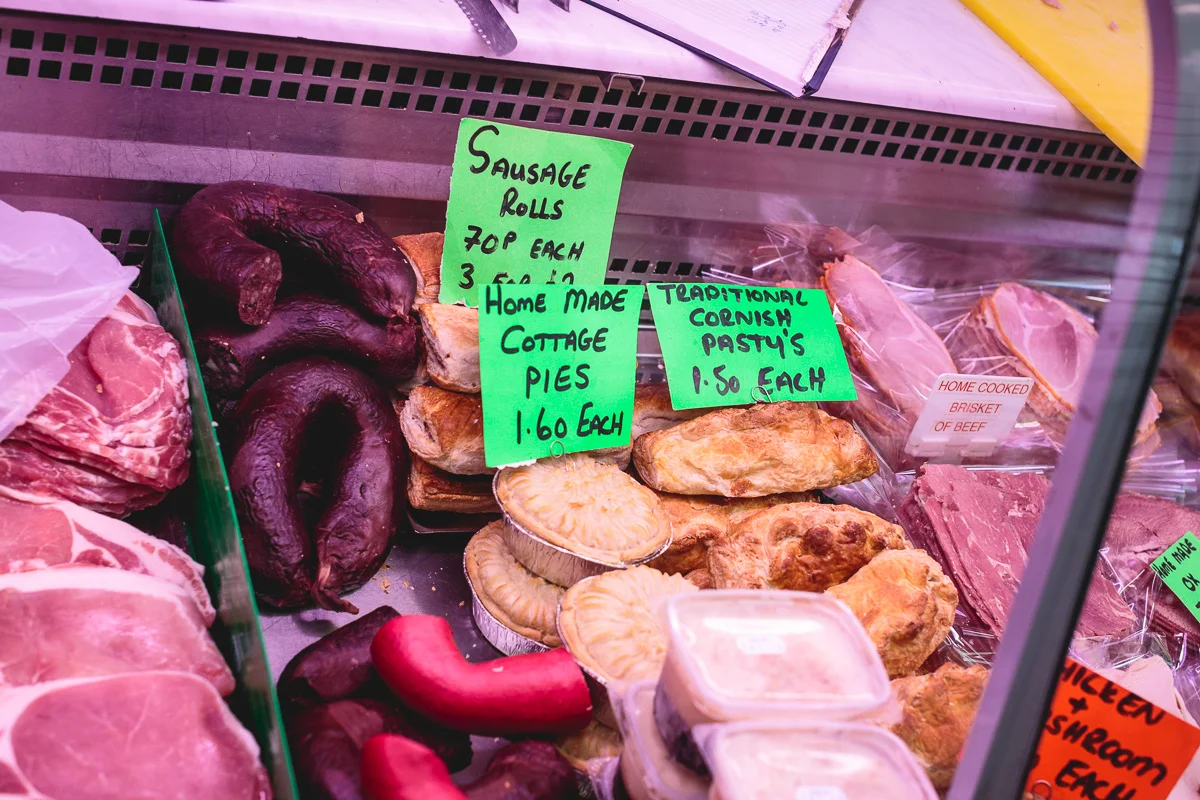 SAUSAGE
ROLLS
70P EACH
3 FOR £2
HOME MADE
COTTAGE
PIES
1.60 EACH
TRADITIONAL
CORNISH
PASTY'S
1.50 EACH
HOME COOKED
BRISKET
OF BEEF
HOME MADE
OX
HICKEN
+
SHROOM
EACH